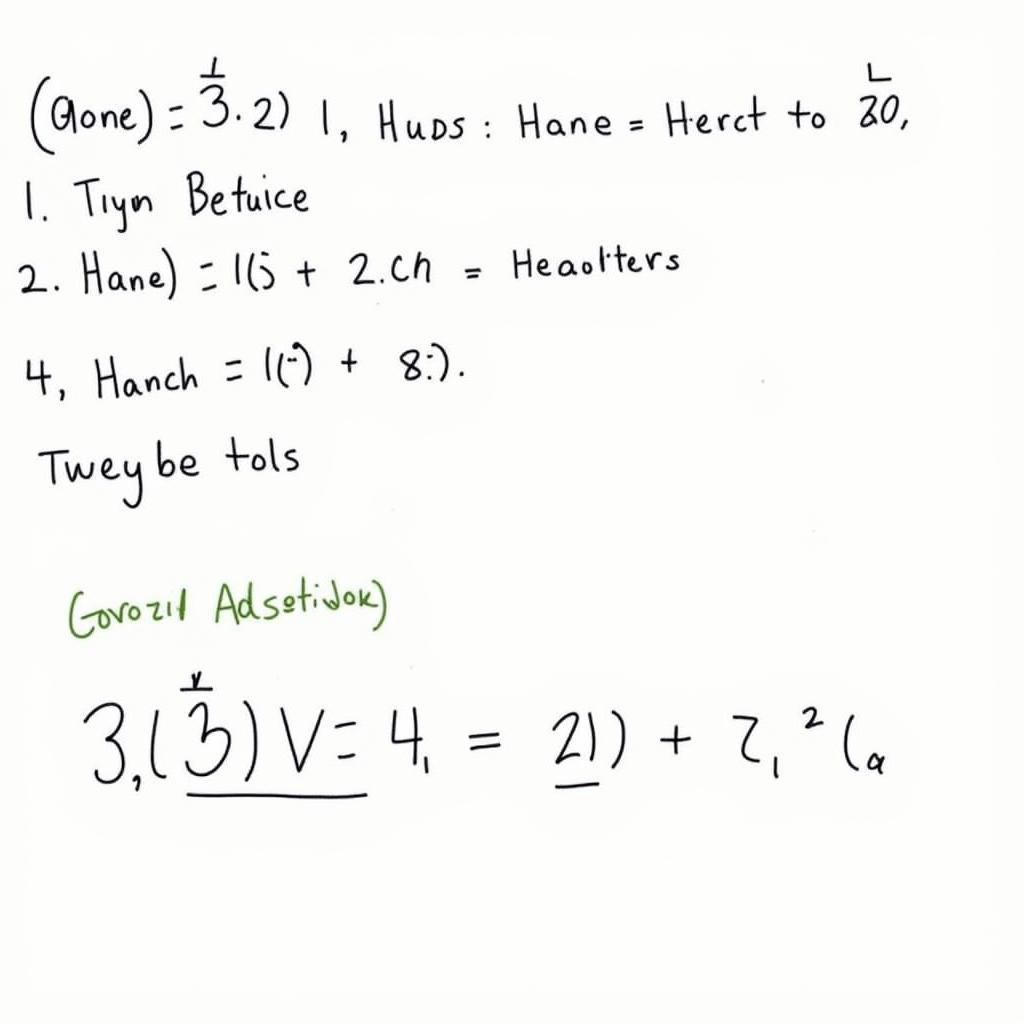 (Qone) = 3.2) 1, Huds : Hane = Herct to 30,
1. Tiyn Betuice
2. Hane) = 1(5 + 2.ch = Heaolters
4, Hanch = 1(-) + 8:).
Twey be tols
Govozil Adsetidok)
3,(3) V = 4, = 21) + 7, ² (a